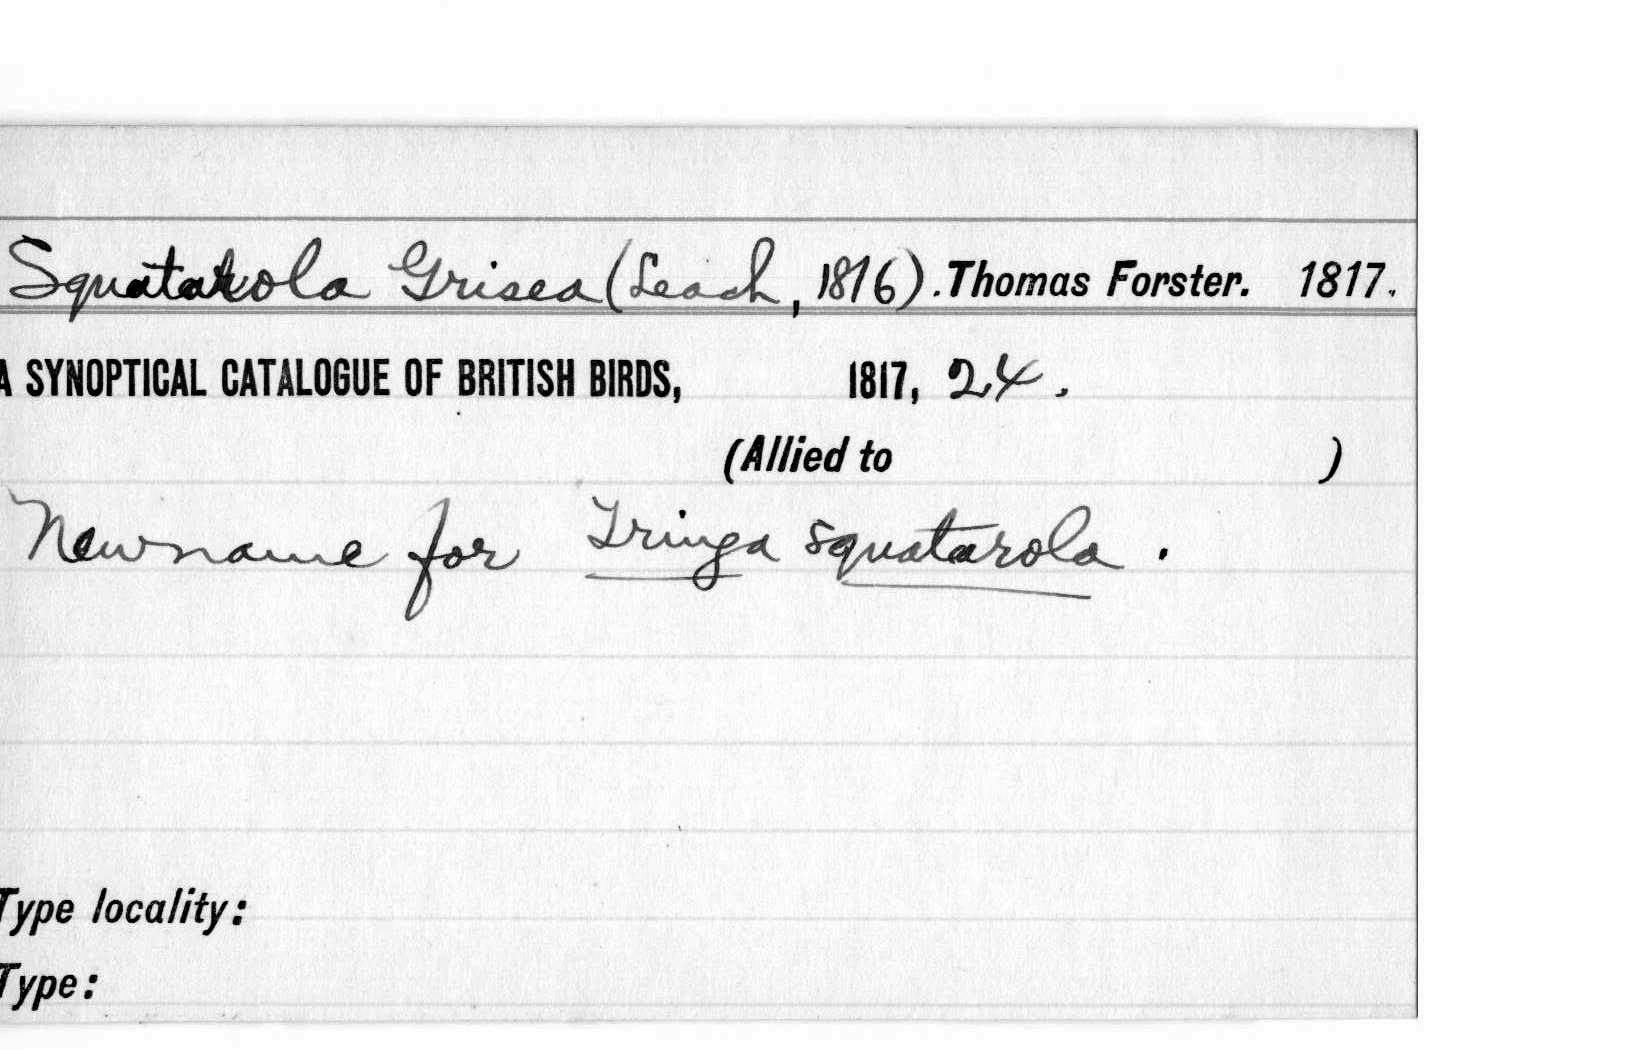 Squatarola Grisea (Leach, 1816). Thomas Forster. 1817.
A SYNOPTICAL CATALOGUE OF BRITISH BIRDS, 1817, 24.
(Allied to )
New name for Tringa squatarola.
Type locality:
Type: